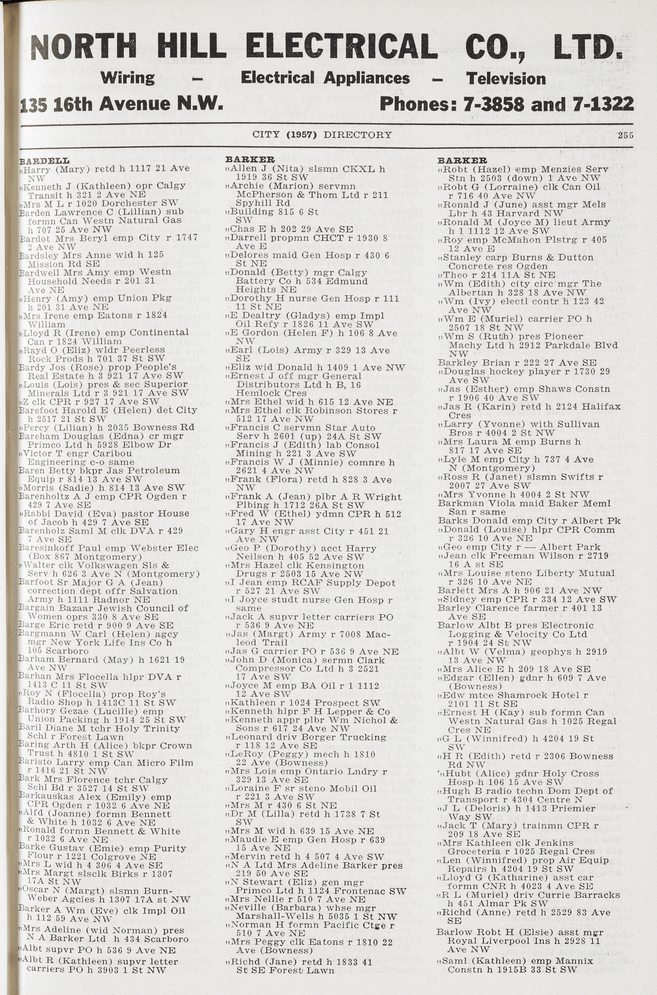 NORTH HILL ELECTRICAL CO., LTD.
Wiring – Electrical Appliances – Television
135 16th Avenue N.W. Phones: 7-3858 and 7-1322
CITY (1957) DIRECTORY 255
BARDELL
"Harry (Mary) retd h 1117 21 Ave
NW
"Kenneth J (Kathleen) opr Calgy
Transit h 321 2 Ave NE
"Mrs M L r 1020 Dorchester SW
Barden Lawrence C (Lillian) sub
formn Can Westn Natural Gas
h 707 25 Ave NW
Bardot Mrs Beryl emp City r 1747
2 Ave NW
Bardsley Mrs Anne wid h 125
Mission Rd SE
Bardwell Mrs Amy emp Westn
Household Needs r 201 31
Ave NE
"Henry (Amy) emp Union Pkg
h 201 31 Ave NE
"Mrs Irene emp Eatons r 1824
William
"Lloyd R (Irene) emp Continental
Can r 1824 William
"Rayd O (Eliz) wldr Peerless
Rock Prods h 701 37 St SW
Bardy Jos (Rose) prop People's
Real Estate h 3 921 17 Ave SW
"Louis (Lois) pres & sec Superior
Minerals Ltd r 3 921 17 Ave SW
"Z clk CPR r 927 17 Ave SW
Barefoot Harold E (Helen) det City
h 2517 21 St SW
"Percy (Lilian) h 2035 Bowness Rd
Bareham Douglas (Edna) cr mgr
Primco Ltd h 5928 Elbow Dr
"Victor T engr Caribou
Engineering c-o same
Baren Betty bkpr Jas Petroleum
Equip r 814 13 Ave SW
"Morris (Sadie) h 814 13 Ave SW
Barenholtz A J emp CPR Ogden r
429 7 Ave SE
"Rabbi David (Eva) pastor House
of Jacob h 429 7 Ave SE
Barenholz Saml M clk DVA r 429
7 Ave SE
Baresinkoff Paul emp Webster Elec
(Box 867 Montgomery)
"Walter clk Volkswagen Sls &
Serv h 626 3 Ave N (Montgomery)
Barfoot Sr Major G A (Jean)
correction dept offr Salvation
Army h 1111 Radnor NE
Bargain Bazaar Jewish Council of
Women oprs 330 8 Ave SE
Barge Eric retd r 900 9 Ave SE
Bargmann W Carl (Helen) agcy
mgr New York Life Ins Co h
105 Scarboro
Barham Bernard (May) h 1621 19
Ave NW
Barhan Mrs Flocella hlpr DVA r
1413 C 11 St SW
"Roy N (Flocella) prop Roy's
Radio Shop h 1413C 11 St SW
Barhory Gezae (Lucille) emp
Union Packing h 1914 25 St SW
Baril Diane M tchr Holy Trinity
Schl r Forest Lawn
Baring Arth H (Alice) bkpr Crown
Trust h 4810 1 St SW
Baristo Larry emp Can Micro Film
r 1416 21 St NW
Bark Mrs Florence tchr Calgy
Schl Bd r 3527 14 St SW
Barkauskas Alex (Emily) emp
CPR Ogden r 1032 6 Ave NE
"Alfd (Joanne) formn Bennett
& White h 1032 6 Ave NE
"Ronald formn Bennett & White
r 1032 6 Ave NE
Barke Gustav (Emie) emp Purity
Flour r 1221 Colgrove NE
"Mrs L wid h 4 306 4 Ave SE
"Mrs Margt slsclk Birks r 1307
17A St NW
"Oscar N (Margt) slsmn Burn-
Weber Agcies h 1307 17A st NW
Barker A Wm (Eve) clk Impl Oil
h 112 59 Ave NW
"Mrs Adeline (wid Norman) pres
N A Barker Ltd h 434 Scarboro
"Albt supvr PO h 536 9 Ave NE
"Albt R (Kathleen) supvr letter
carriers PO h 3903 1 St NW
BARKER
"Allen J (Nita) slsmn CKXL h
1919 36 St SW
"Archie (Marion) servmn
McPherson & Thom Ltd r 211
Spyhill Rd
"Building 815 6 St
SW
"Chas E h 202 29 Ave SE
"Darrell propmn CHCT r 1930 8
Ave E
"Delores maid Gen Hosp r 430 6
St NE
"Donald (Betty) mgr Calgy
Battery Co h 534 Edmund
Heights NE
"Dorothy H nurse Gen Hosp r 111
11 St NE
"E Dealtry (Gladys) emp Impl
Oil Refy r 1826 11 Ave SW
"E Gordon (Helen F) h 106 8 Ave
NW
"Earl (Lois) Army r 329 13 Ave
SE
"Eliz wid Donald h 1409 1 Ave NW
"Ernest J off mgr General
Distributors Ltd h B, 16
Hemlock Cres
"Mrs Ethel wid h 615 12 Ave NE
"Mrs Ethel clk Robinson Stores r
512 17 Ave NW
"Francis C servmn Star Auto
Serv h 2601 (up) 24A St SW
"Francis J (Edith) lab Consol
Mining h 221 3 Ave SW
"Francis W J (Minnie) comnre h
2621 4 Ave NW
"Frank (Flora) retd h 828 3 Ave
NW
"Frank A (Jean) plbr A R Wright
Plbing h 1712 26A St SW
"Fred W (Ethel) ydmn CPR h 512
17 Ave NW
"Gary H engr asst City r 451 21
Ave NW
"Geo P (Dorothy) acct Harry
Neilsen h 405 52 Ave SW
"Mrs Hazel clk Kensington
Drugs r 2503 15 Ave NW
"I Jean emp RCAF Supply Depot
r 527 21 Ave SW
"I Joyce studt nurse Gen Hosp r
same
"Jack A supvr letter carriers PO
r 536 9 Ave NE
"Jas (Margt) Army r 7008 Mac-
leod Trail
"Jas G carrier PO r 536 9 Ave NE
"John D (Monica) sermn Clark
Compressor Co Ltd h 3 2521
17 Ave SW
"Joyce M emp BA Oil r 1 1112
12 Ave SW
"Kathleen r 1024 Prospect SW
"Kenneth hlpr F H Lepper & Co
"Kenneth appr plbr Wm Nichol &
Sons r 617 24 Ave NW
"Leonard driv Borger Trucking
r 118 12 Ave SE
"LeRoy (Peggy) mech h 1810
22 Ave (Bowness)
"Mrs Lois emp Ontario Lndry r
329 13 Ave SE
"Loraine F sr steno Mobil Oil
r 221 3 Ave SW
"Mrs M r 430 6 St NE
"Dr M (Lilla) retd h 1738 7 St
SW
"Mrs M wid h 639 15 Ave NE
"Maudie E emp Gen Hosp r 639
15 Ave NE
"Mervin retd h 4 507 4 Ave SW
"N A Ltd Mrs Adeline Barker pres
219 50 Ave SE
"N Stewart (Eliz) gen mgr
Primco Ltd h 1124 Frontenac SW
"Mrs Nellie r 510 7 Ave NE
"Neville (Barbara) whse mgr
Marshall-Wells h 5035 1 St NW
"Norman H formn Pacific Ctge r
510 7 Ave NE
"Mrs Peggy clk Eatons r 1810 22
Ave (Bowness)
"Richd (Jane) retd h 1833 41
St SE Forest Lawn
BARKER
"Robt (Hazel) emp Menzies Serv
Stn h 2503 (down) 1 Ave NW
"Robt G (Lorraine) clk Can Oil
r 716 40 Ave NW
"Ronald J (June) asst mgr Mels
Lbr h 43 Harvard NW
"Ronald M (Joyce M) lieut Army
h 1 1112 12 Ave SW
"Roy emp McMahon Plstrg r 405
12 Ave E
"Stanley carp Burns & Dutton
Concrete res Ogden
"Theo r 214 11A St NE
"Wm (Edith) city circ mgr The
Albertan h 328 18 Ave NW
"Wm (Ivy) electl contr h 123 42
Ave NW
"Wm E (Muriel) carrier PO h
2507 18 St NW
"Wm S (Ruth) pres Pioneer
Machy Ltd h 2912 Parkdale Blvd
NW
Barkley Brian r 222 27 Ave SE
"Douglas hockey player r 1730 29
Ave SW
"Jas (Esther) emp Shaws Constn
r 1906 40 Ave SW
"Jas R (Karin) retd h 2124 Halifax
Cres
"Larry (Yvonne) with Sullivan
Bros r 4004 2 St NW
"Mrs Laura M emp Burns h
817 17 Ave SE
"Lyle M emp City h 737 4 Ave
N (Montgomery)
"Ross R (Janet) slsmn Swifts r
2007 27 Ave SW
"Mrs Yvonne h 4004 2 St NW
Barkman Viola maid Baker Meml
San r same
Barks Donald emp City r Albert Pk
"Donald (Louise) hlpr CPR Comm
r 326 10 Ave NE
"Geo emp City r — Albert Park
"Jean clk Freeman Wilson r 2719
16 A st SE
"Mrs Louise steno Liberty Mutual
r 326 10 Ave NE
Barlett Mrs A h 906 21 Ave NW
"Sidney emp CPR r 334 12 Ave SW
Barley Clarence farmer r 401 13
Ave SE
Barlow Albt B pres Electronic
Logging & Velocity Co Ltd
r 1904 24 St NW
"Albt W (Velma) geophys h 2919
13 Ave NW
"Mrs Alice E h 209 18 Ave SE
"Edgar (Ellen) gdnr h 609 7 Ave
(Bowness)
"Edw mtce Shamrock Hotel r
2101 11 St SE
"Ernest H (Kay) sub formn Can
Westn Natural Gas h 1025 Regal
Cres NE
"G L (Winnifred) h 4204 19 St
SW
"H R (Edith) retd r 2306 Bowness
Rd NW
"Hubt (Alice) gdnr Holy Cross
Hosp h 106 15 Ave SW
"Hugh B radio techn Dom Dept of
Transport r 4304 Centre N
"J L (Deloris) h 1413 Premier
Way SW
"Jack T (Mary) trainmn CPR r
209 18 Ave SE
"Mrs Kathleen clk Jenkins
Groceteria r 1025 Regal Cres
"Len (Winnifred) prop Air Equip
Repairs h 4204 19 St SW
"Lloyd G (Katharine) asst car
formn CNR h 4023 4 Ave SE
"R L (Muriel) driv Currie Barracks
h 451 Almar Pk SW
"Richd (Anne) retd h 2529 83 Ave
SE
Barlow Robt H (Elsie) asst mgr
Royal Liverpool Ins h 2928 11
Ave NW
"Saml (Kathleen) emp Mannix
Constn h 1915B 33 St SW